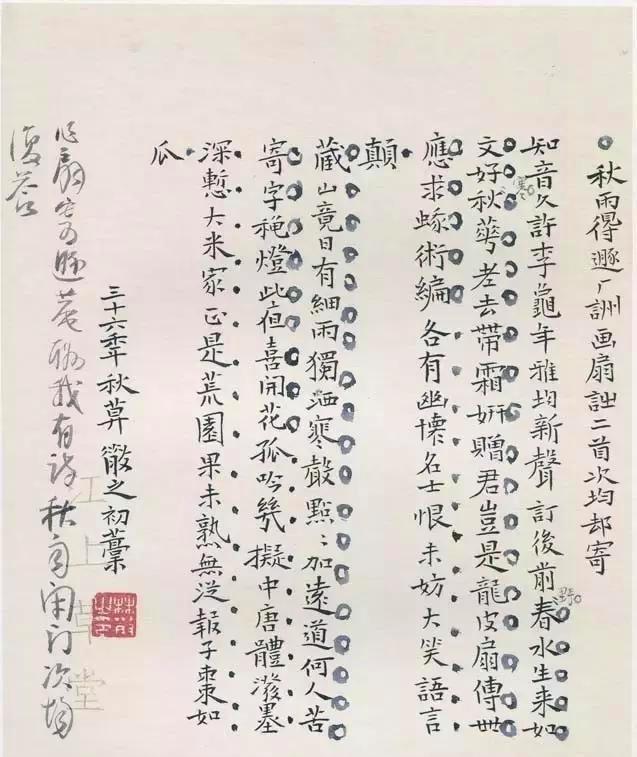 秋雨得遯厂詶画扇詩二首次均却寄
知音久許李龜年雅均新聲訂後前春水生来如
野
文好秋華老去帶霜妍贈君豈是龍皮扇傳世
寒
應求術編各有幽懷名士恨未妨大笑語言
顛
蔵山竟日有細雨獨寒聲點〻加遠道何人苦
寄字穐燈此夜喜開花孤吟幾擬中唐體潑墨
深慙大米家正是荒園果未熟無從報子棗如
瓜
三十六年秋莫散之初藁
扇寄遯菴酬我有詩秋雨闭门次均
復答
江上草堂